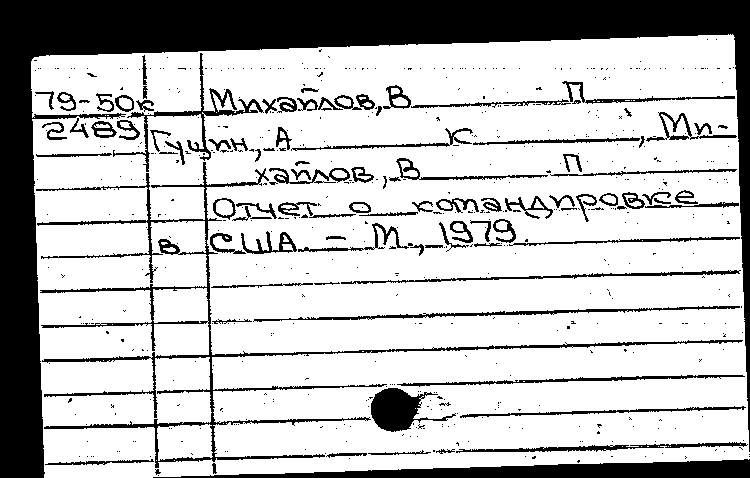 79-50к Михайлов, В П
2489 Гущин, А К , Ми-
хайлов, В П
Отчет о командировке
в США. – М., 1979.